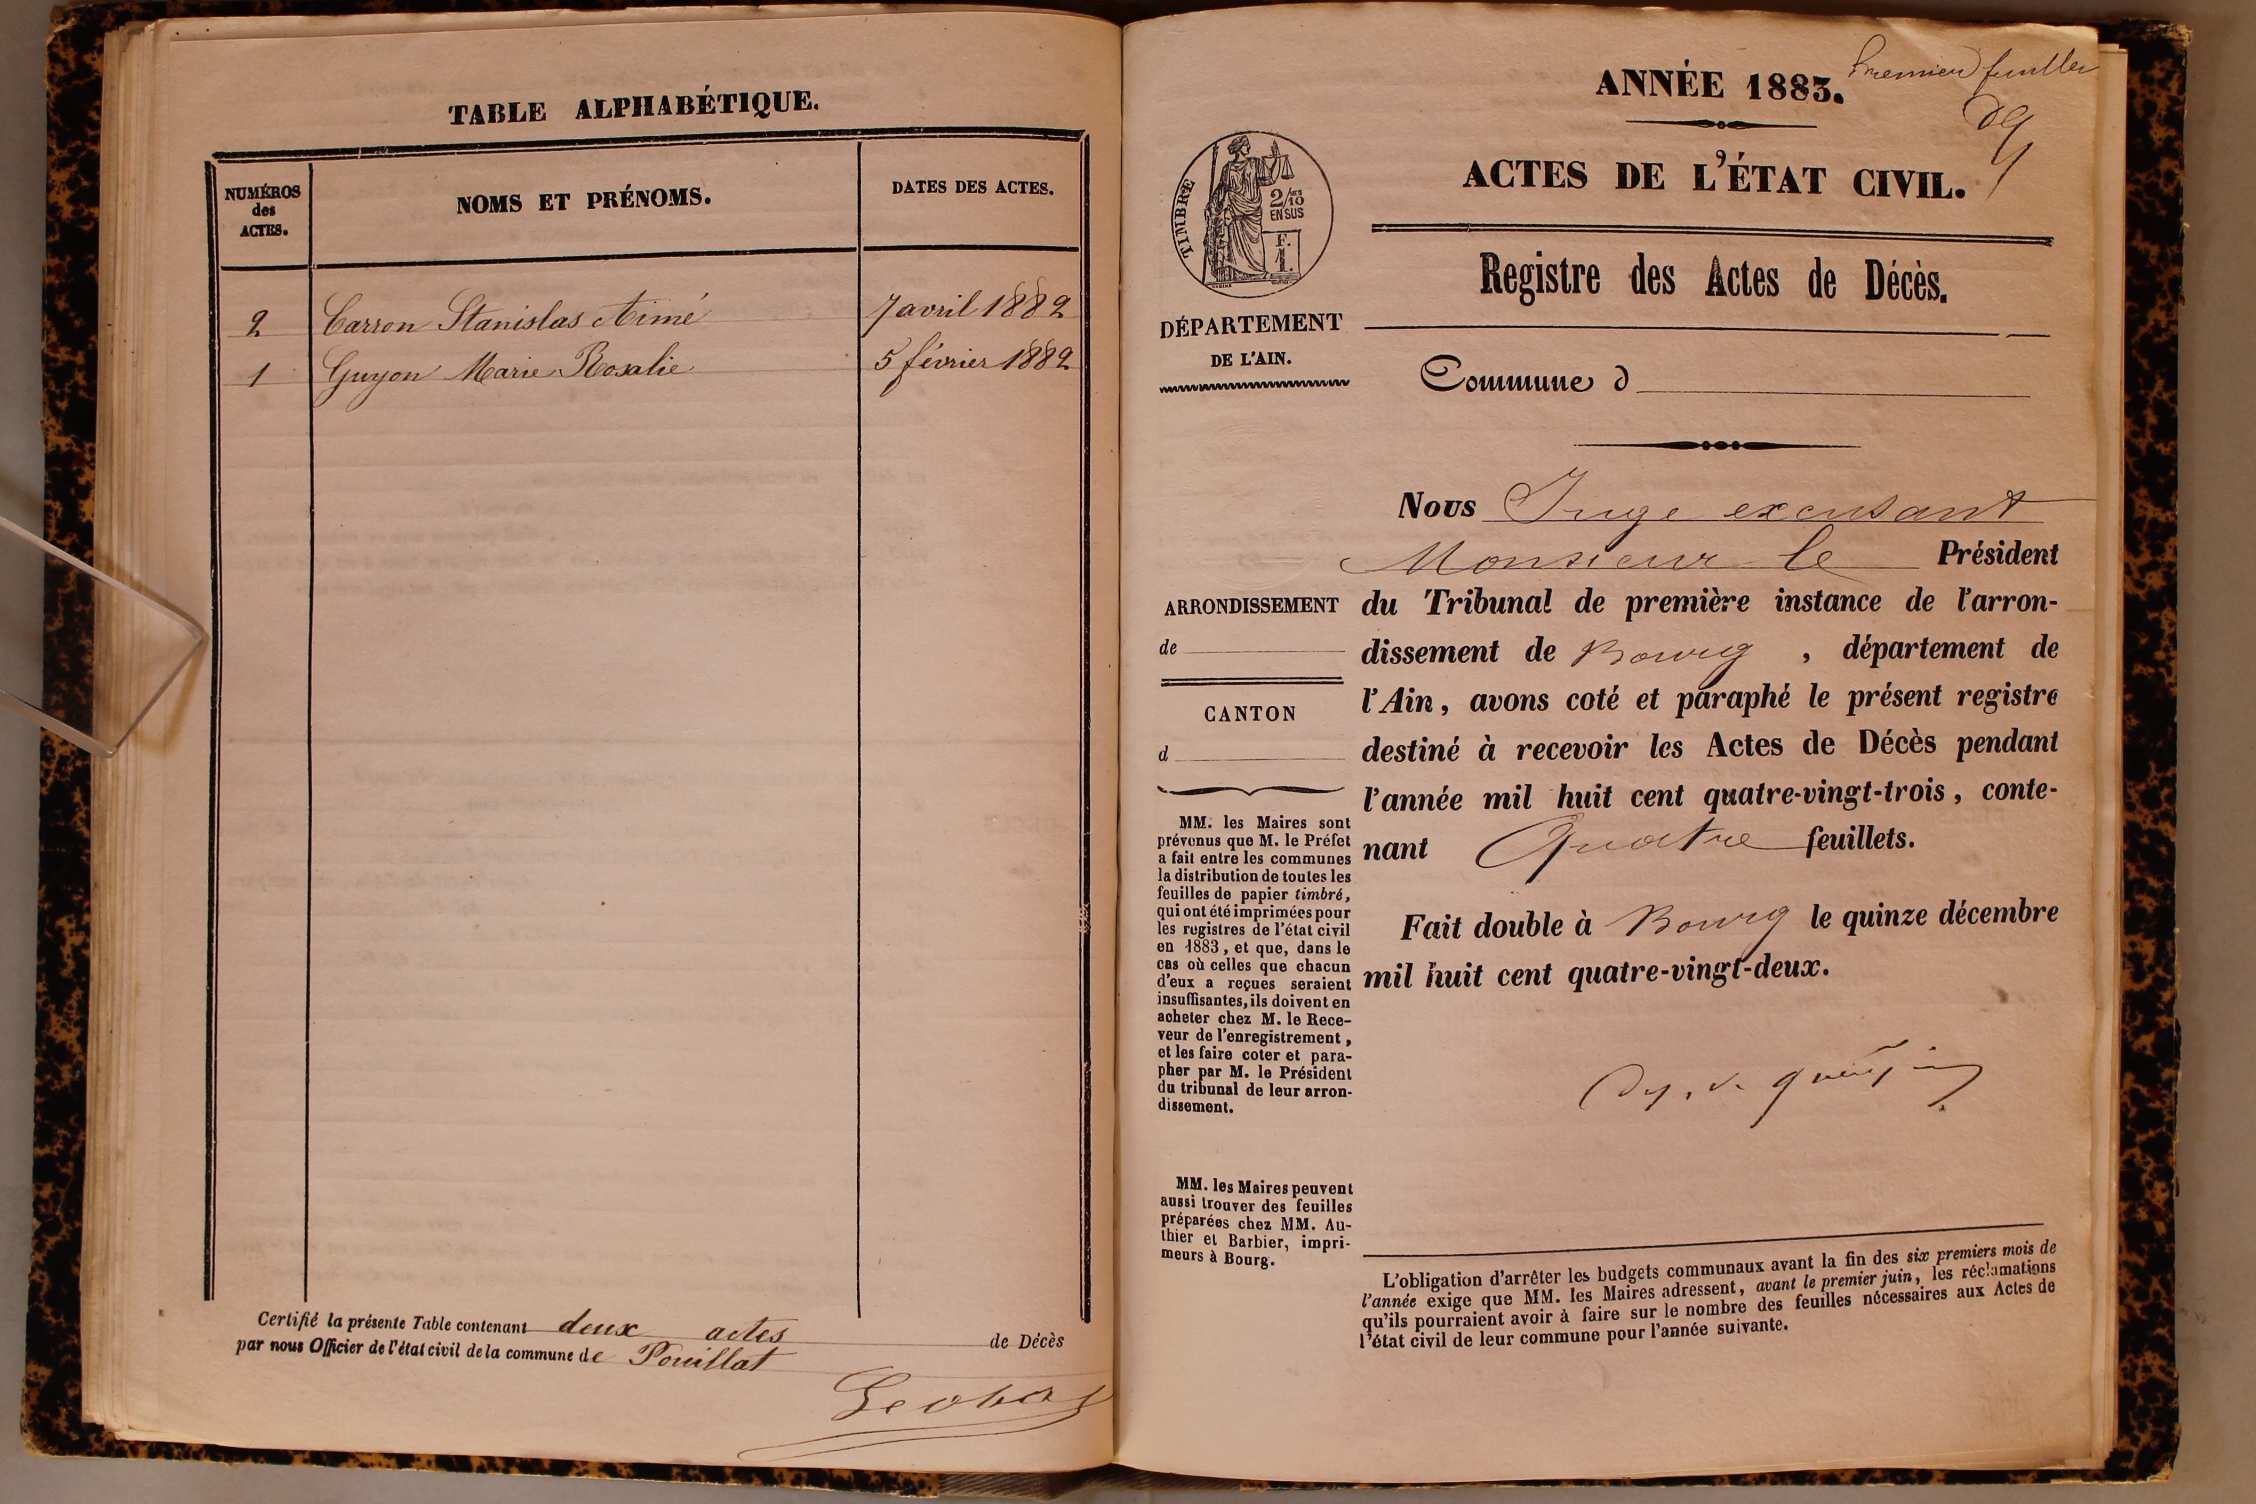 TABLE ALPHABÉTIQUE.
NUMÉROS
des
ACTES.
NOMS ET PRÉNOMS.
DATES DES ACTES.
2 Carron Stanislas Aimé 7 avril 1882
1 Guyon Marie Rosalie 5 février 1882
Certifié la présente Table contenant deux actes de Décès
par nous Officier de l'état civil de la commune de Pouillat
ANNÉE 1883.
Premier feuillet
ACTES DE L'ÉTAT CIVIL.
TIMBRE
2/10
EN SUS
F.
1.
Registre des Actes de Décès.
DÉPARTEMENT
DE L'AIN.
Commune d
Nous Juge excusant
Monsieur le Président
du Tribunal de première instance de l'arron-
dissement de Bourg, département de
l'Ain, avons coté et paraphé le présent registre
destiné à recevoir les Actes de Décès pendant
l'année mil huit cent quatre-vingt-trois, conte-
nant Quatre feuillets.
Fait double à Bourg le quinze décembre
mil huit cent quatre-vingt-deux.
ARRONDISSEMENT
de
CANTON
d
MM. les Maires sont
prévenus que M. le Préfet
a fait entre les communes
la distribution de toutes les
feuilles de papier timbré,
qui ont été imprimées pour
les registres de l'état civil
en 1883, et que, dans le
cas où celles que chacun
d'eux a reçues seraient
insuffisantes, ils doivent en
acheter chez M. le Rece-
veur de l'enregistrement,
et les faire coter et para-
pher par M. le Président
du tribunal de leur arron-
dissement.
MM. les Maires peuvent
aussi trouver des feuilles
préparées chez MM. Au-
thier et Barbier, impri-
meurs à Bourg.
L'obligation d'arrêter les budgets communaux avant la fin des six premiers mois de
l'année exige que MM. les Maires adressent, avant le premier juin, les réclamations
qu'ils pourraient avoir à faire sur le nombre des feuilles nécessaires aux Actes de
l'état civil de leur commune pour l'année suivante.